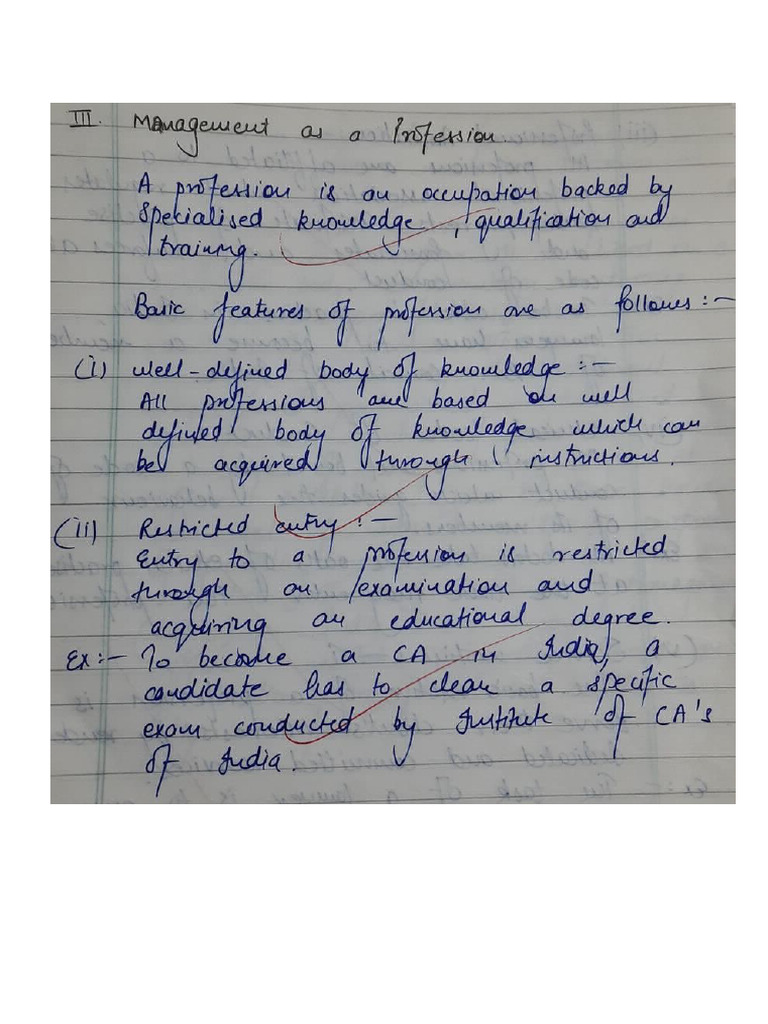 III. Management as a Profession.
A profession is an occupation backed by
specialised knowledge, qualification and
training.
Basic features of profession are as follows:-
(i) Well-defined body of knowledge :-
All professions are based on well
defined body of knowledge which can
be acquired through instructions.
(ii) Restricted entry :-
Entry to a profession is restricted
through an examination and
acquiring an educational degree.
Ex:- To become a CA in India, a
candidate has to clear a specific
exam conducted by Institute of CA's
of India.